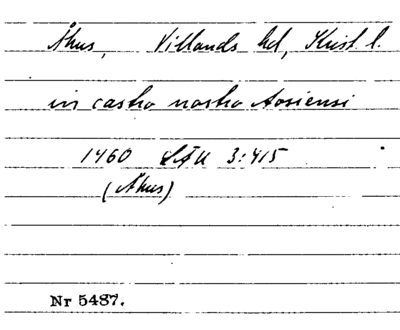 Åhus, Villands hd, Krist. l.
in castro nostro Aosiensi
1460 LÄU 3:415
(Åhus)
Nr 5487.